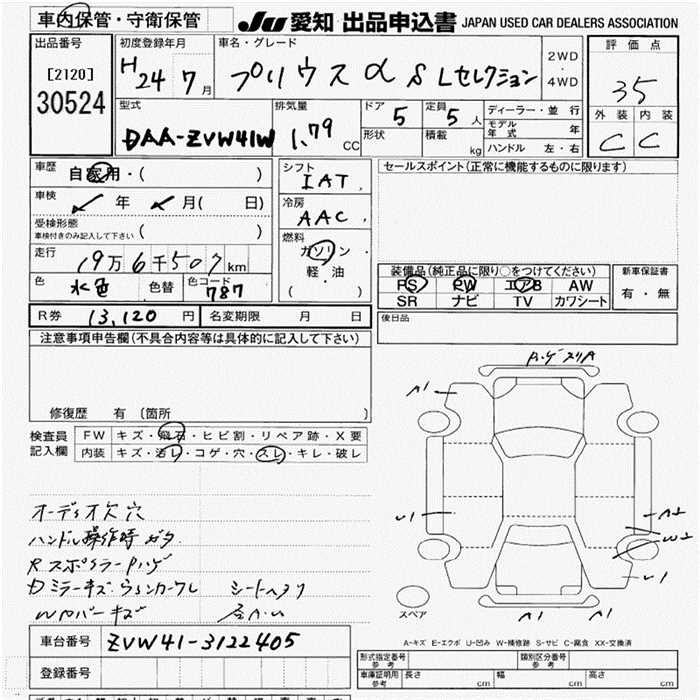 車内保管・守衛保管
JU 愛知 出品申込書 JAPAN USED CAR DEALERS ASSOCIATION
出品番号
[2120]
30524
初度登録年月
H 24 7月
車名・グレード
プリウスα S Lセレクション
2WD
・
4WD
評価点
35
外装 内装
C C
型式
DAA-ZVW41W
排気量
1.79 CC
ドア 5
定員 5人
形状
積載 kg
ディーラー・並行
モデル年式 年
ハンドル 左・右
車歴 自家用・( )
車検 年 月( 日)
受検形態
車検付きのみ記入して下さい ( )
走行
19万6千507km
色 水色 色替 色コード 787
シフト
IAT
冷房
AAC
燃料
ガソリン・
軽・油
( )
セールスポイント(正常に機能するものに限ります)
装備品(純正品に限り○をつけてください)
PS PW エアB AW
SR ナビ TV カワシート
新車保証書
有・無
R券 13,120円 名変期限 月 日
後日品
注意事項申告欄(不具合内容等は具体的に記入して下さい)
修復歴 有 〔箇所 〕
検査員
記入欄
FW キズ・飛石・ヒビ割・リペア跡・X要
内装 キズ・汚レ・コゲ・穴・スレ・キレ・破レ
オーディオ欠 穴
ハンドル操作時 ガタ
Rスポイラー Pハゲ
Dミラーキズ・ウィンカーワレ シートヘタリ
Wカバーキズ
A1
A2
W2
A1 A1
スペア
A-キズ E-エクボ U-凹み W-補修跡 S-サビ C-腐食 XX-交換済
車台番号 ZVW41-3122405
登録番号
形式指定番号
参考
類別区分番号
参考
車庫証明用
参考
長さ cm 幅 cm 高さ cm